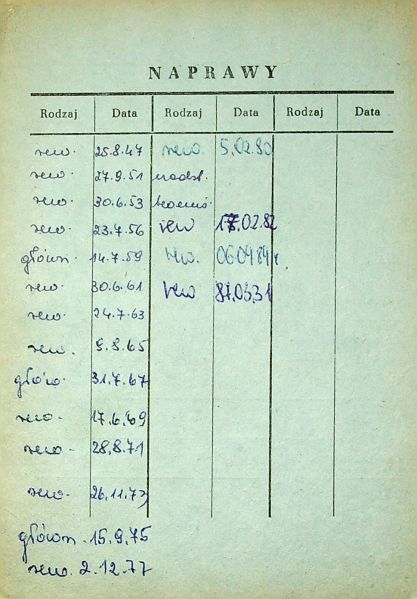 NAPRAWY
Rodzaj Data Rodzaj Data Rodzaj Data
rew. 25.8.47 rew. 5.02.80
rew. 27.9.51 nadst.
rew. 30.6.53
rew. 23.7.56 rew 17.02.82
główn. 14.7.59 rew. 06.04.84 r
rew. 30.6.61 rew
rew. 24.7.63
rew. 9.9.65
głów. 31.7.67
rew. 17.6.69
rew. 28.8.71
rew. 26.11.73
główn. 15.9.75
rew. 2.12.77